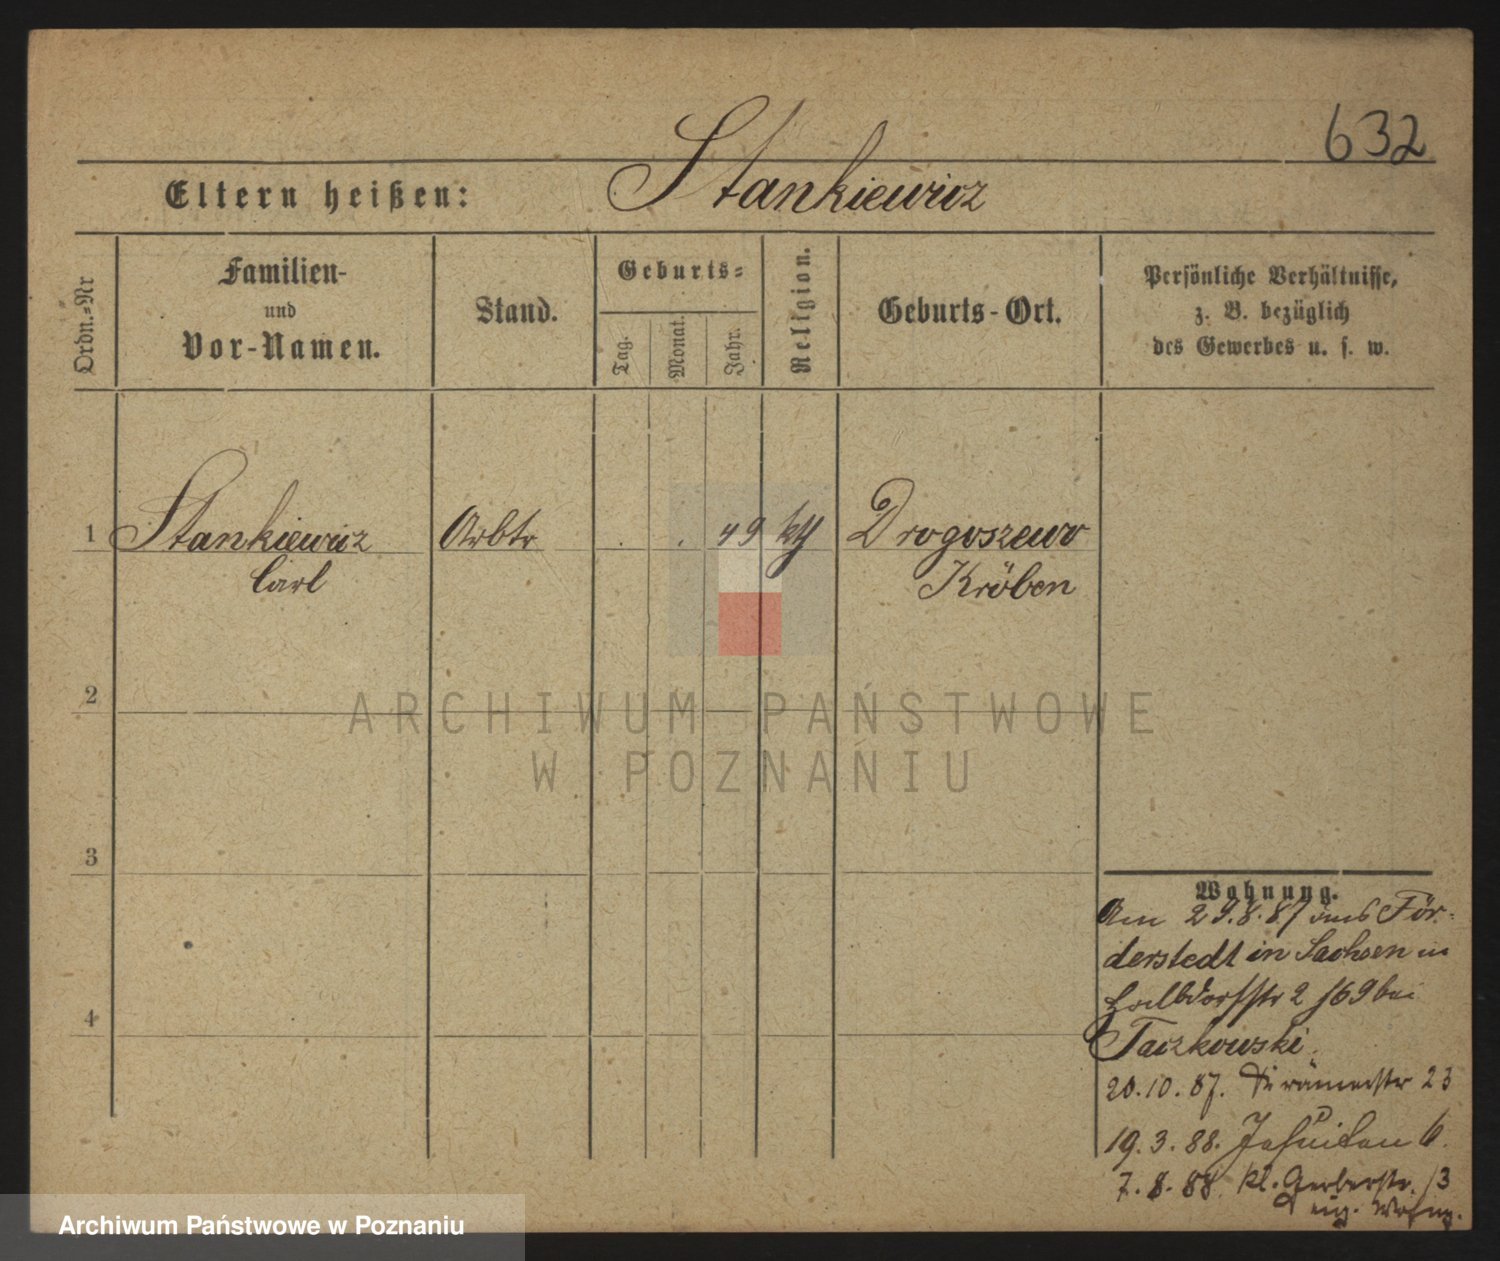 632
Stankiewicz
Eltern heißen:
Ordn.-Nr
Familien-
und
Vor-Namen.
Stand.
Geburts-
Tag.
Monat.
Jahr.
Religion.
Geburts-Ort.
Persönliche Verhältnisse,
z. B. bezüglich
des Gewerbes u. s. w.
1 Stankiewicz Arbtr . . 49 kth Drogoszewo
Carl Kröben
2
ARCHIWUM PAŃSTWOWE
W POZNANIU
3
4
Wohnung.
Am 29.8.87 aus För-
derstedt in Sachsen in
2 169 bei
Taczkowski.
20.10.87. 23
19.3.88. Jesuiten 6.
7.8.88 kl. Gerberstr. 13
eig. Wohng.
Archiwum Państwowe w Poznaniu